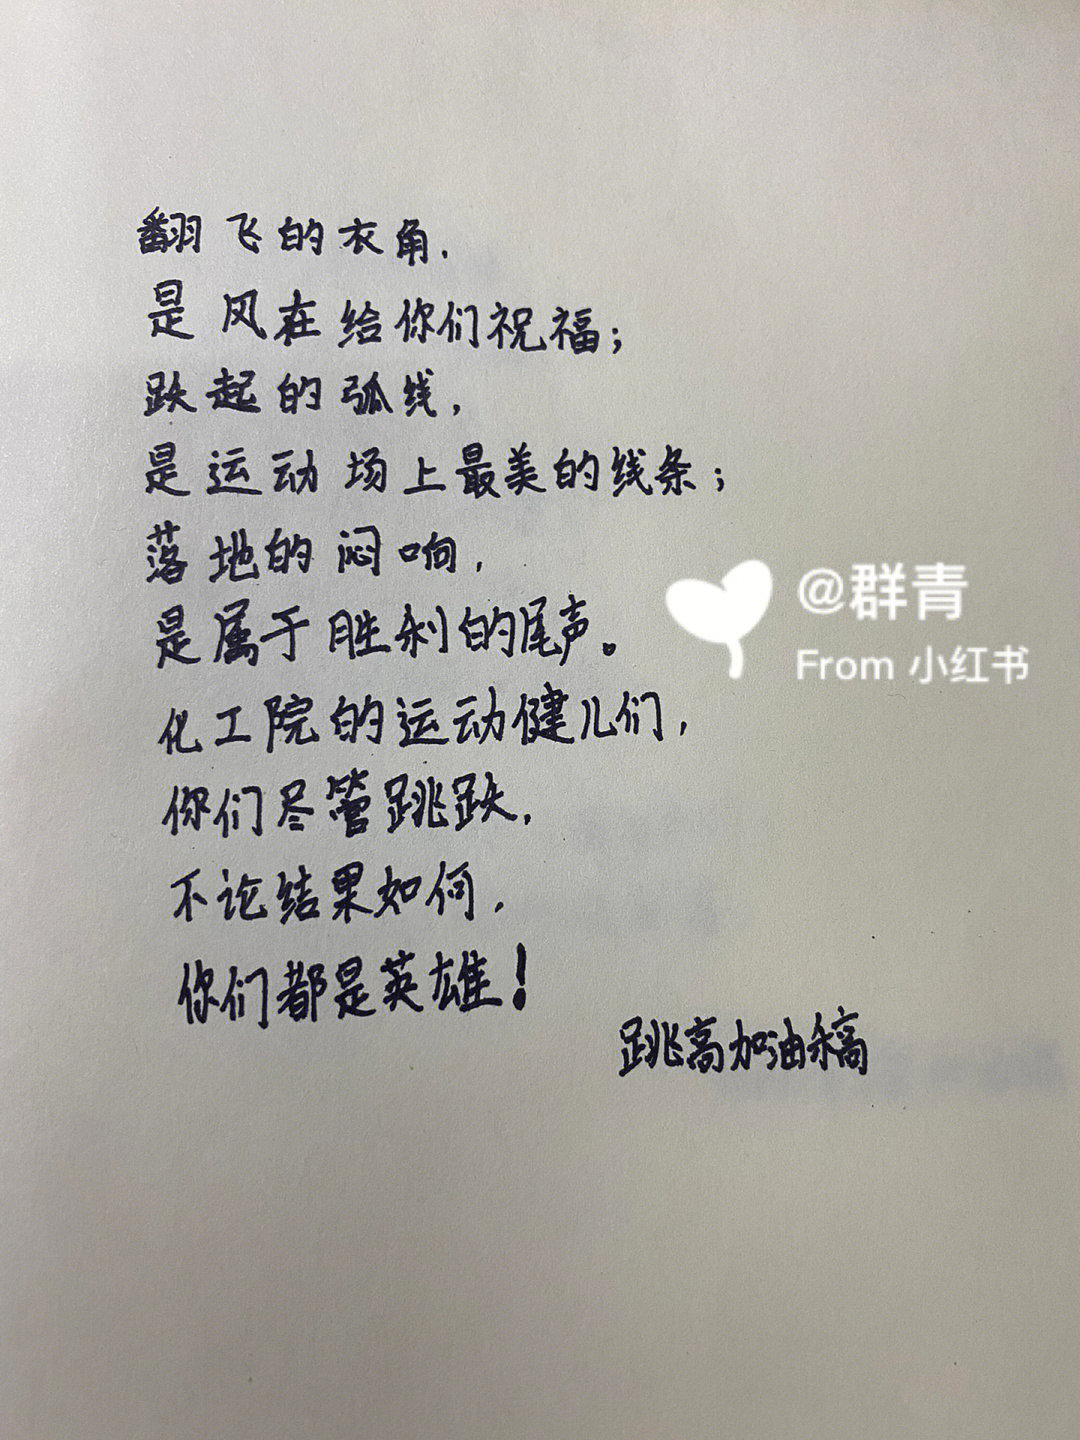 翻飞的衣角，
是风在给你们祝福；
跃起的弧线，
是运动场上最美的线条；
落地的闷响，
是属于胜利的尾声。
化工院的运动健儿们，
你们尽管跳跃，
不论结果如何，
你们都是英雄！
跳高加油稿
@群青
From 小红书